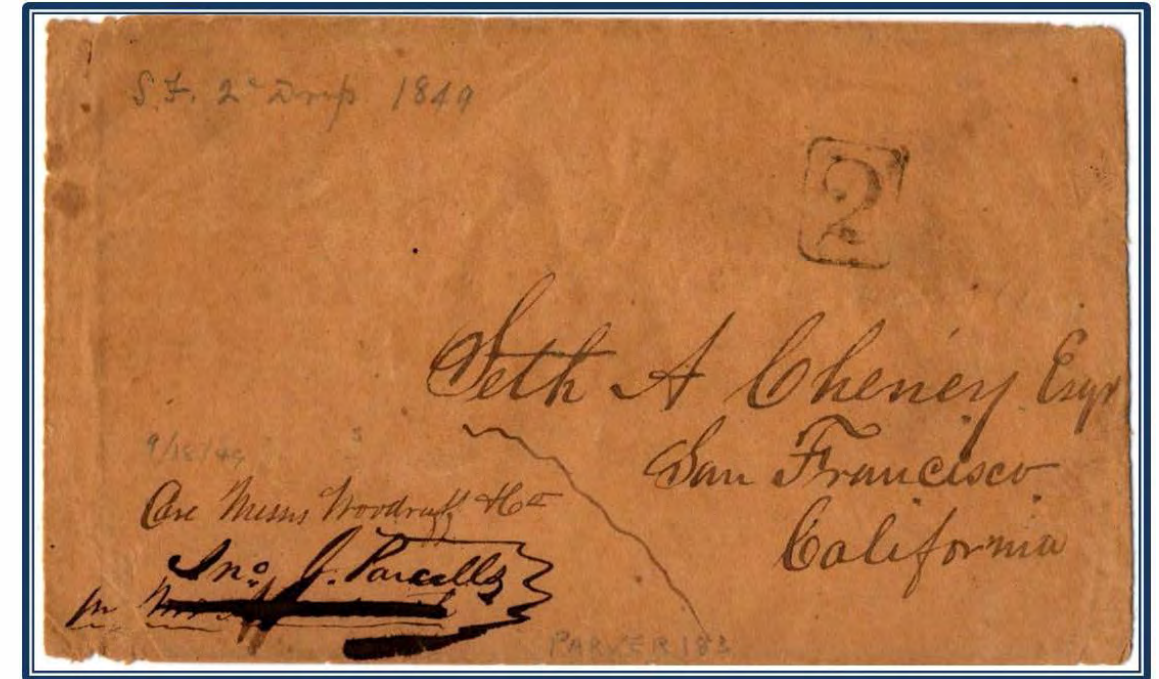 S.F. 2c Drop 1849
2
Seth A Cheney Esqr
San Francisco
California
9/18/49
Care Messrs Woodruff & Co
Jno. J. Parcells
PARVER 183